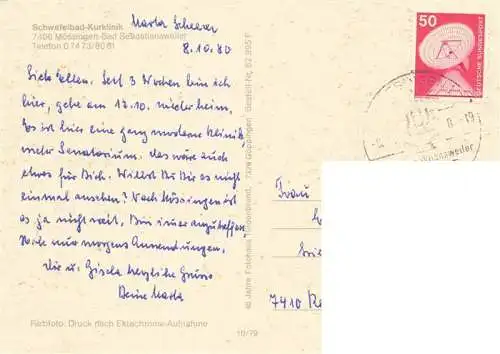 Schwefelbad-Kurklinik
7406 Mössingen-Bad Sebastiansweiler
Telefon 0 74 73/80 81
8.10.80
Liebe Ellen. Seit 3 Wochen bin ich
hier, gehe am 17.10. wieder heim,
Es ist hier eine ganz moderne Klinik
oder Sanatorium. Das wäre auch
etwas für Dich. Willst Du Dir es nicht
einmal ansehen? Nach Mössingen ist
es ja nicht weit. Bin immer anzutreffen
nur morgens Anwendungen.
Dir u. Gisela herzliche Grüsse
Deine
Farbfoto: Druck nach Ektachrome-Aufnahme
18/79
40 Jahre Fotohaus Göppingen Bestell-Nr. 62 995 F
50
DEUTSCHE BUNDESPOST
Frau
7410 Re